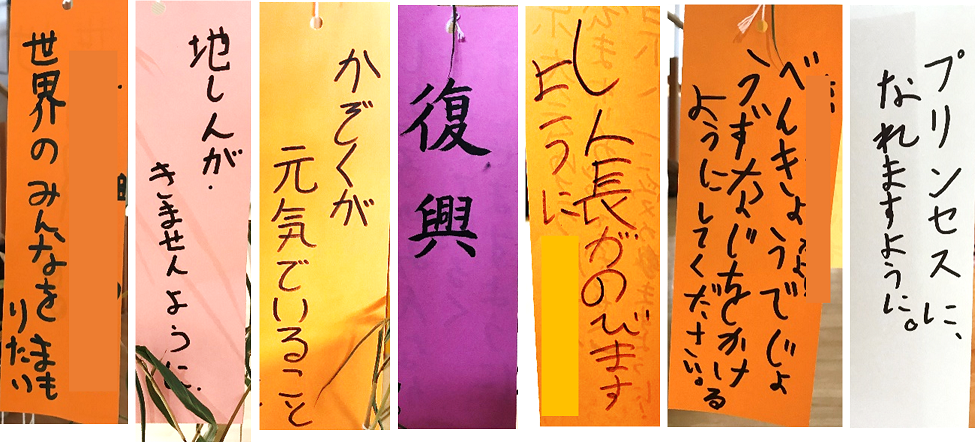 世界のみんなをまも
りたい
地しんが
きませんように.
かぞくが
元気でいること
復興
しん長がのびます
ように
べんきょうでじょ
うずなじをかける
ようにしてください。
プリンセスに、
なれますように。